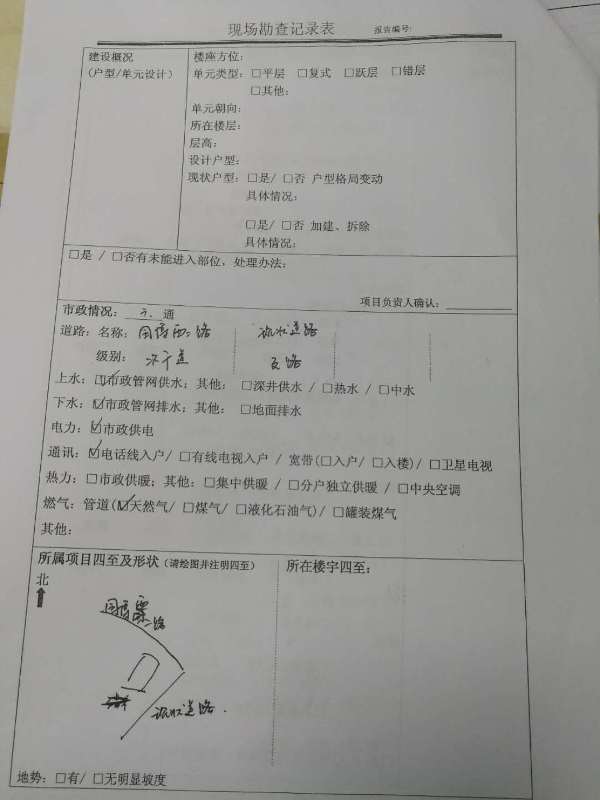 现场勘查记录表 报告编号:
建设概况
(户型/单元设计)
楼座方位:
单元类型: □平层 □复式 □跃层 □错层
□其他:
单元朝向:
所在楼层:
层高:
设计户型:
现状户型: □是/ □否 户型格局变动
具体情况:
□是/ □否 加建、拆除
具体情况:
□是 / □否有未能进入部位, 处理办法:
项目负责人确认:
市政情况: 通
道路: 名称: 路 道路
级别: 次干道 支路
上水: ☑市政管网供水; 其他: □深井供水 / □热水 / □中水
下水: ☑市政管网排水; 其他: □地面排水
电力: ☑市政供电
通讯: ☑电话线入户/ □有线电视入户 / 宽带(□入户/ □入楼)/ □卫星电视
热力: □市政供暖; 其他: □集中供暖 / □分户独立供暖 / □中央空调
燃气: 管道(☑天然气/ □煤气/ □液化石油气)/ □罐装煤气
其他:
所属项目四至及形状 (请绘图并注明四至)
所在楼宇四至:
北
路
道路
地势: □有/ □无明显坡度